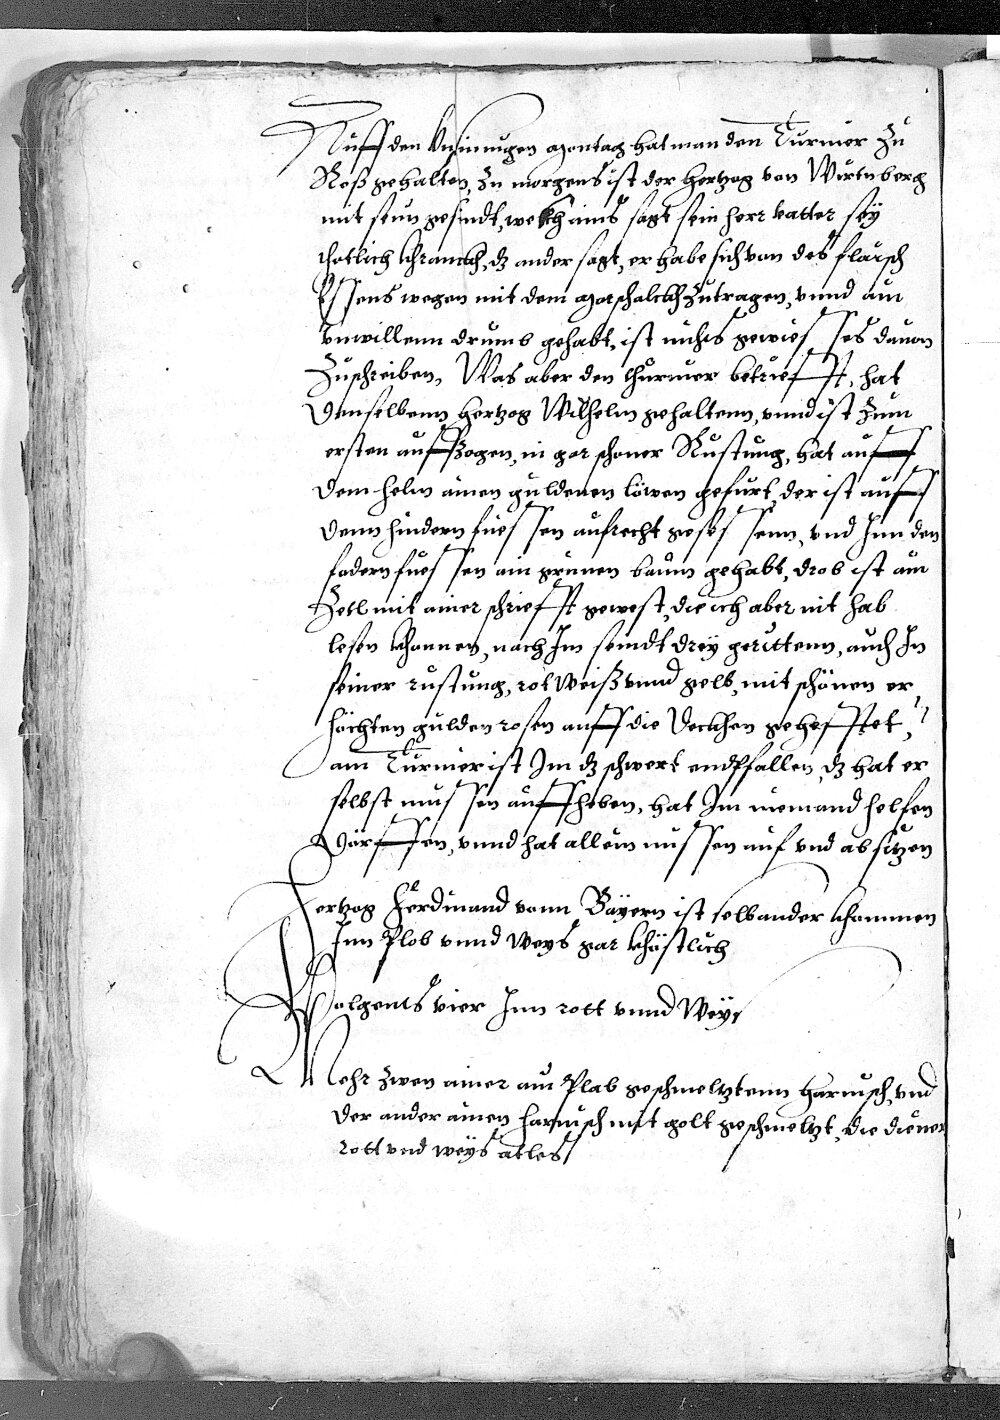 Auff den Unsinnigen Montag hat man den Turnier zu
Roß gehalten, Zu morgens ist der hertzog von Wirtnberg
mit seim gesindt, weckh ains sagt sein herr vatter sey
thotlich khranckh, dz ander sagt, er habe sich von des flaisch
Essens wegen mit dem Marschalckh Zutragen, vnnd ain
vnwillenn drumb gehabt, ist nichts gewiesses dauon
Zuschreiben, Was aber den thurnier betriefft, hat
denselbenn hertzog Wilhelm gehaltenn, vnnd ist Zum
ersten auffzogen, in gar schoner Rustung, hat auff
dem helm ainen guldenen löwen gefurt, der ist auff
denn hindern fuessen aufrecht gesessenn, vnd Inn den
fodern fuessen ain grunen baum gehabt, drob ist ain
Zetl mit ainer schriefft gewest, die ich aber nit hab
lesen khonnen, nach Im seindt drey gerittenn, auch In
seiner rustung, rot Weiß vnnd gelb, mit schönen er,,
höchten gulden rosen auff die Deckhen gehefftet,
am Turnier ist Im dz schwert endtpfallen, dz hat er
selbst muessen auffheben, hat Im niemand helfen
dörffen, vnnd hat allein muessen auf vnd absitzen
Hertzog Ferdinand vonn Bayern ist selbander khommen
Inn Plob vnnd Weys gar khöstlich
Volgents vier Inn rott vnnd Weys
Mehr zwen ainer ain Plab geschmeltztenn harnisch, vnd
der ander ainen harnisch mit golt geschmeltzt, die diener
rott vnd weys alles